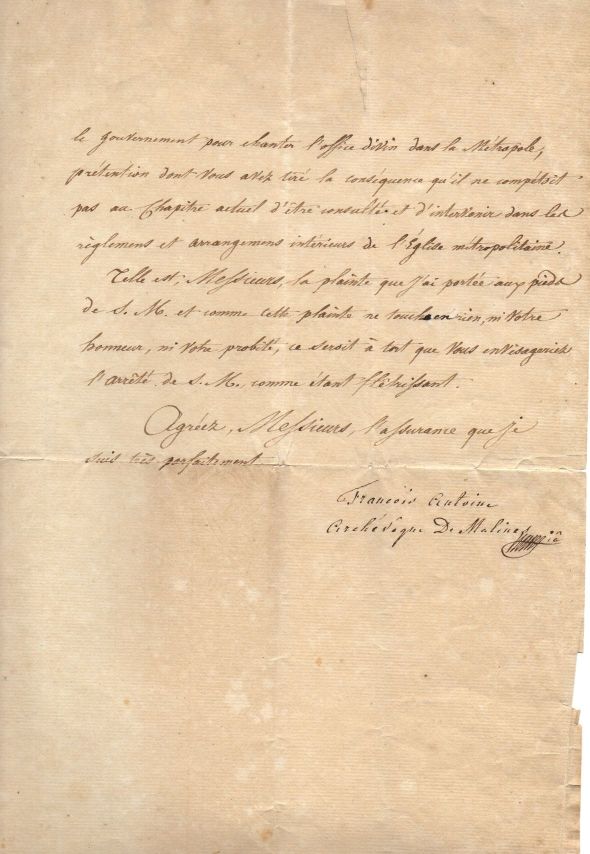 le gouvernement pour chanter l'office divin dans la Métropole,
prétention dont Vous avez tiré la conséquence qu'il ne compétoit
pas au Chapitre actuel d'être consulté et d'intervenir dans les
règlemens et arrangemens intérieurs de l'Église métropolitaine.
Telle est, Messieurs, la plainte que j'ai portée aux pieds
de S. M. et comme cette plainte ne touche en rien, ni Votre
honneur, ni Votre probité, ce seroit à tort que Vous envisageriez
l'arrêté de S. M., comme étant flétrissant.
Agréez, Messieurs, l'assurance que je
suis très parfaitement
François Antoine
Archévêque De Malines